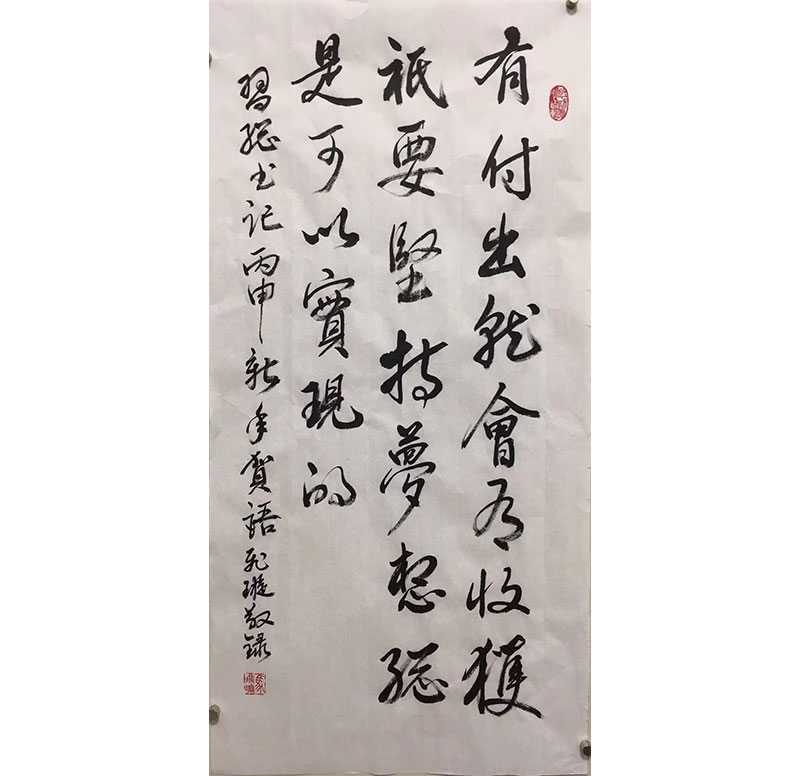 有付出就會有收獲
祇要堅持夢想總
是可以實現的
習總書記丙申新年賀語飛璇敬錄